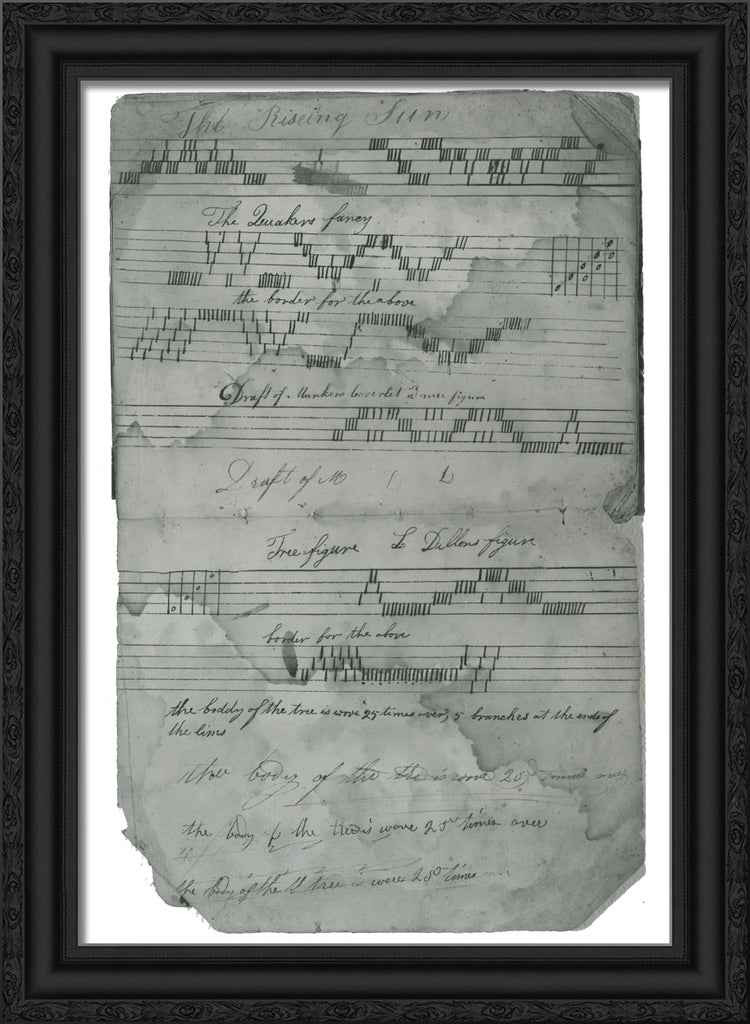 The Riseing Sun
The Quakers fancy
the border for the above
Draft of Coverlet a nice figure
Draft of M L
Tree figure L Dillons figure
border for the above
the boddy of the tree is wove 25 times over, 5 branches at the ends of
the lims
tree body of the tre is wove 25 times over
the body of the tree is wove 25 times over
the body of the tree is wore 25 times